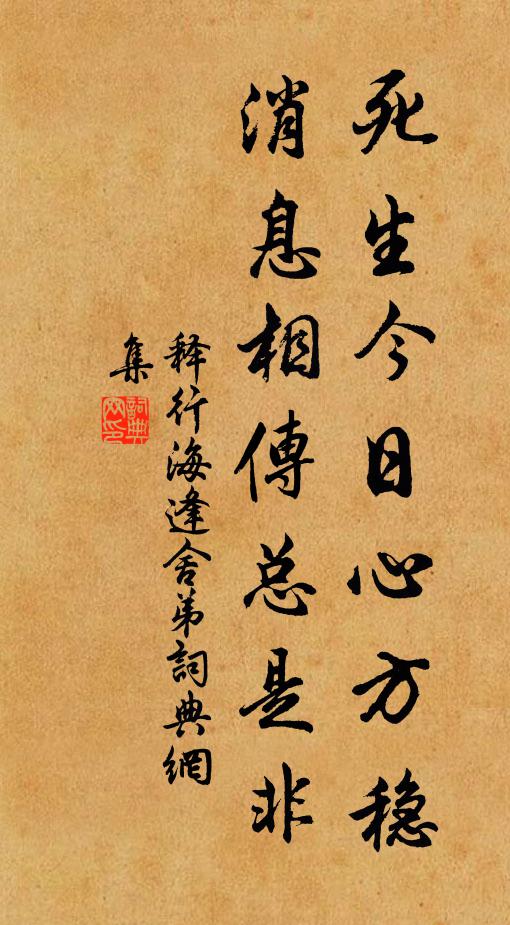 死生今日心方稳
消息相傳总是非
释行海逢舍弟詞典網
集
詞典网印